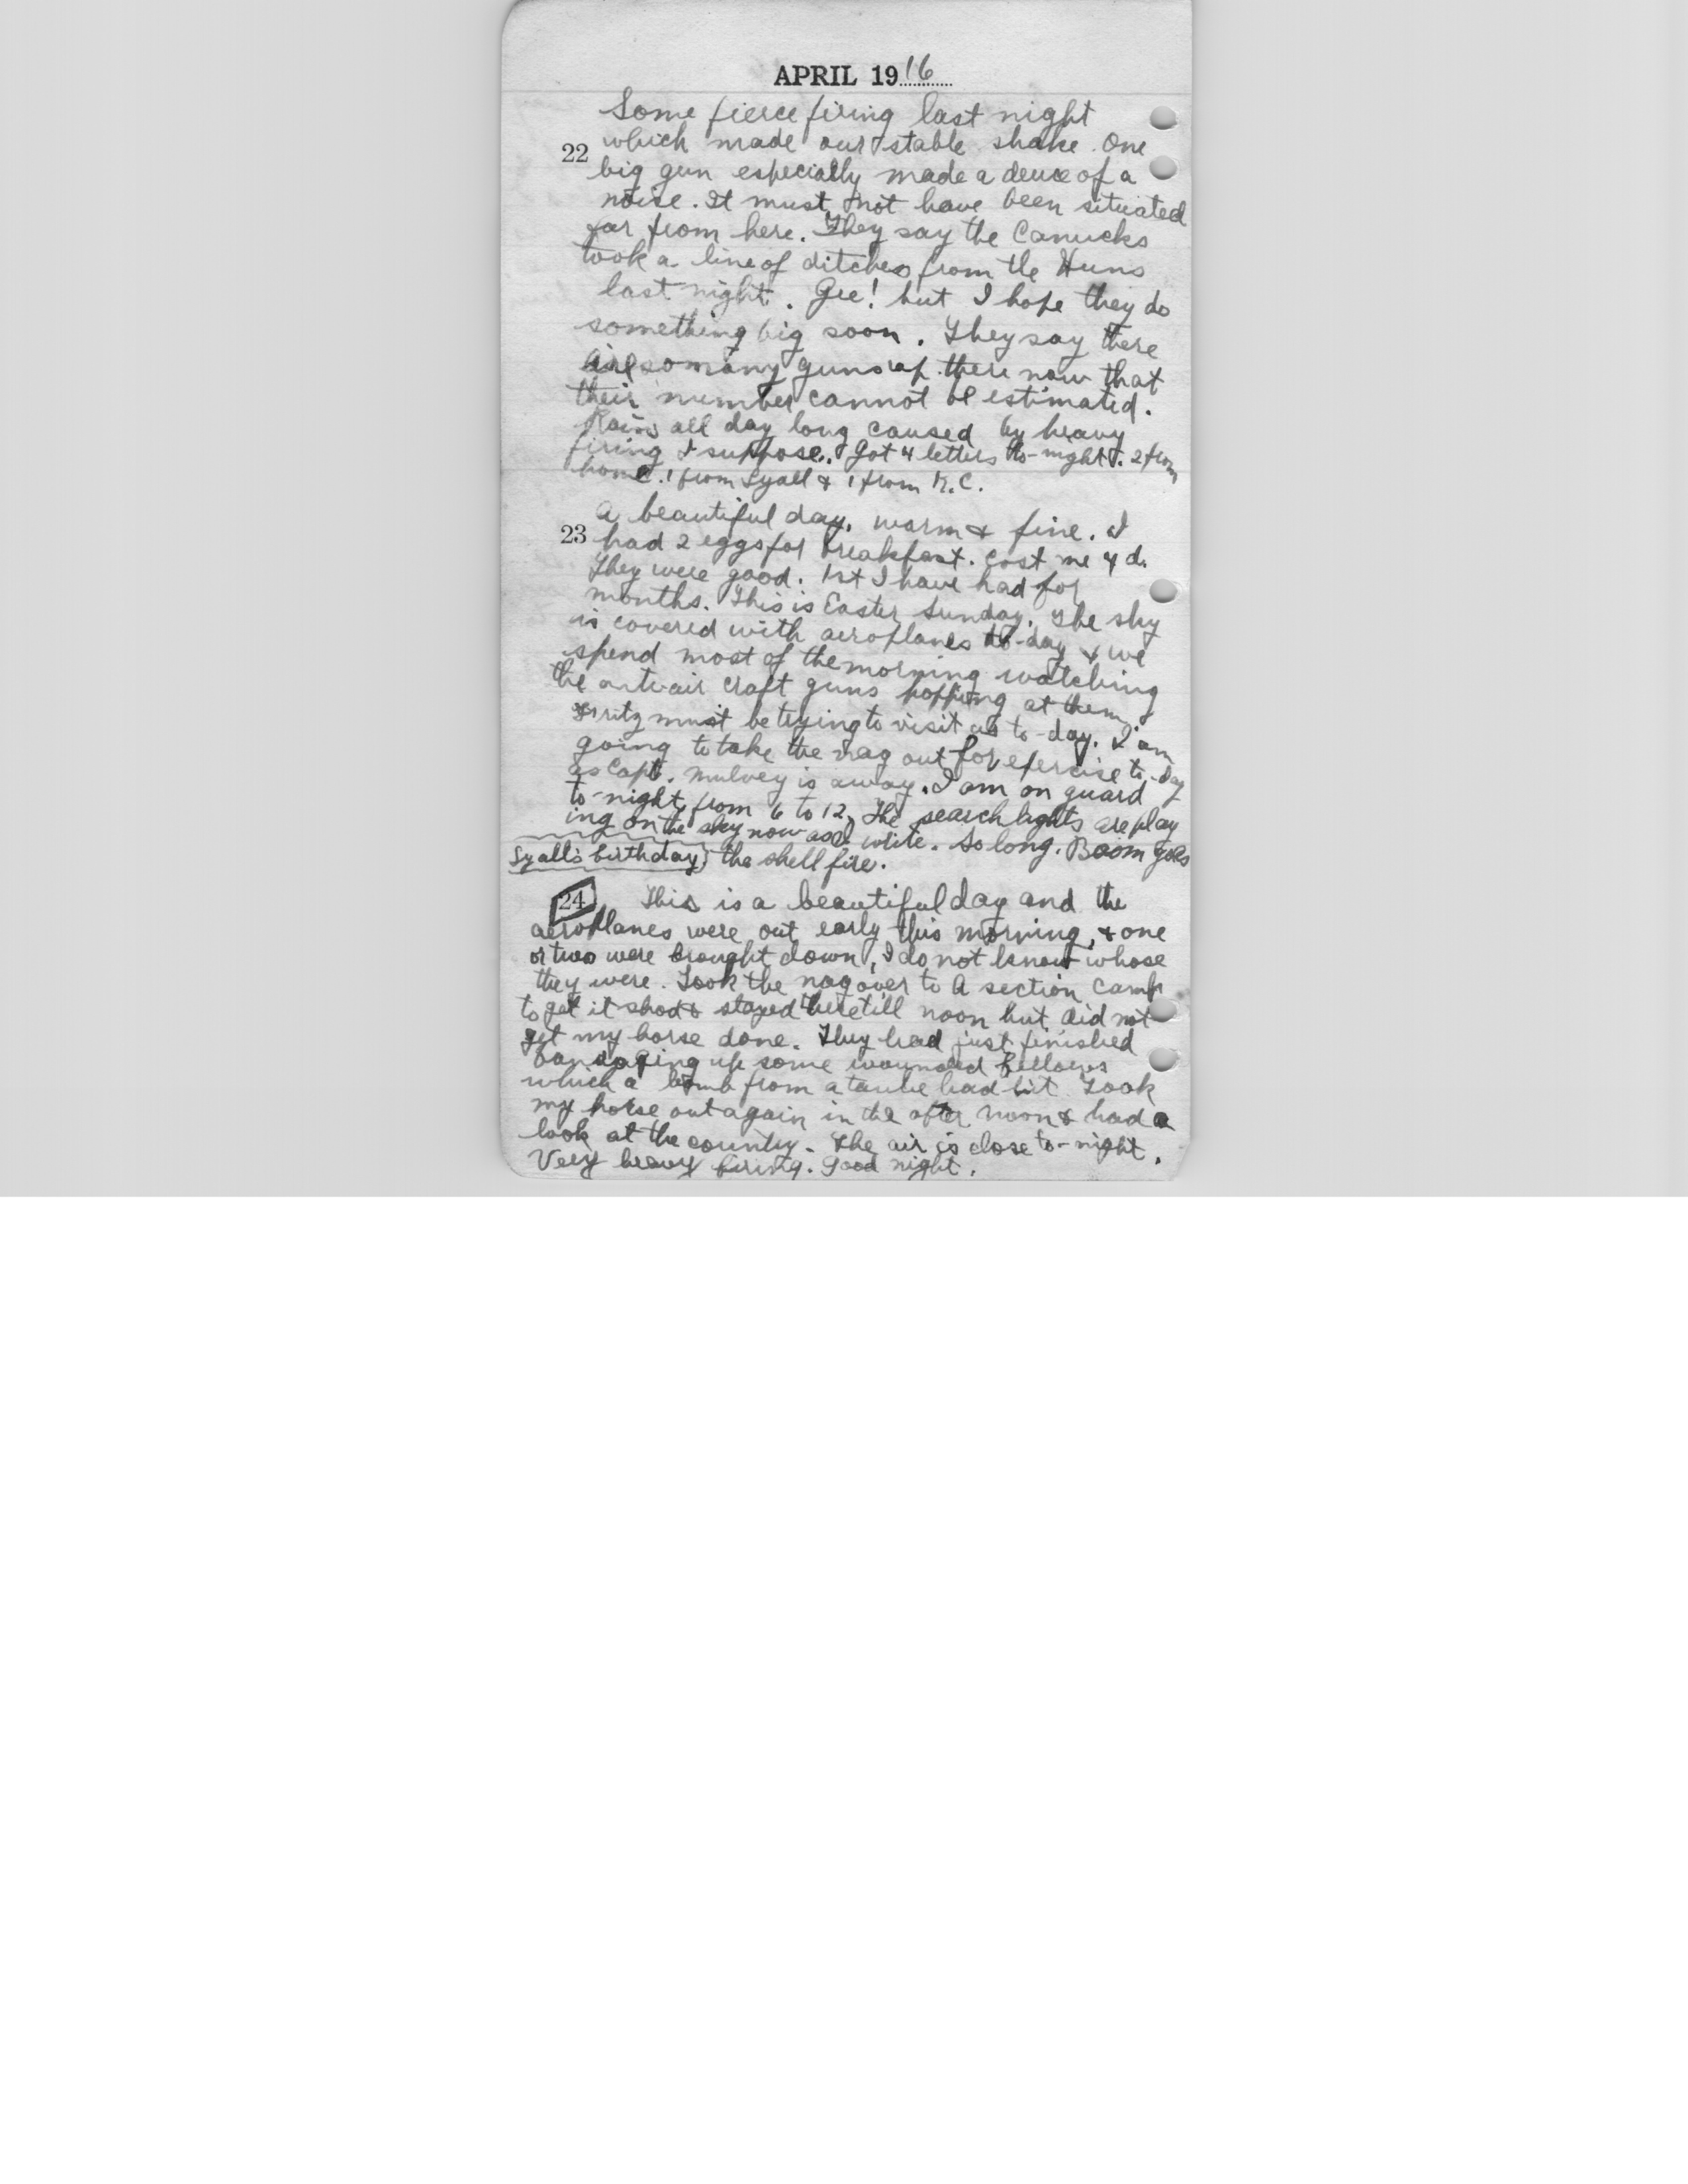 APRIL 1916
Some fierce firing last night
22 which made our stable shake. One
big gun especially made a deuce of a
noise. It must not have been situated
far from here. They say the Canucks
took a line of ditches from the Huns
last night. Gee! but I hope they do
something big soon. They say there
are so many guns up there now that
their number cannot be estimated.
Rain all day long caused by heavy
firing I suppose. Got 4 letters to-night. 2 from
home. 1 from Lyall & 1 from K.C.
A beautiful day, warm & fine. I
23 had 2 eggs for breakfast. Cost me 4 d.
They were good. 1st I have had for
months. This is Easter Sunday. The sky
is covered with aeroplanes to-day & we
spend most of the morning watching
the anti air craft guns popping at them.
Fritz must be trying to visit us to-day. I am
going to take the nag out for exercise to-day
as Capt. Mulvey is away. I am on guard
to-night from 6 to 12. The searchlights are play
ing on the sky now as I write. So long. Boom goes
Lyall's birthday) the shell fire.
24 This is a beautiful day and the
aeroplanes were out early this morning, & one
or two were brought down, I do not know whose
they were. Took the nag over to A section camp
to get it shod & stayed there till noon but did not
get my horse done. They had just finished
bandaging up some wounded fellows
which a bomb from a taube had hit. Took
my horse out again in the after noon & had a
look at the country. The air is close to-night.
Very heavy firing. Good night.